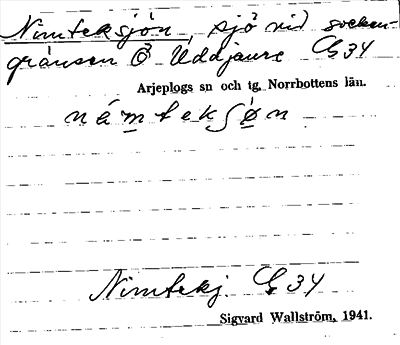 Nimteksjön, sjö vid socken-
gränsen Ö Uddjaure G 34
Arjeplogs sn och tg, Norrbottens län.
námtekʃø̀n
Nimtekj. G 34
Sigvard Wallström, 1941.